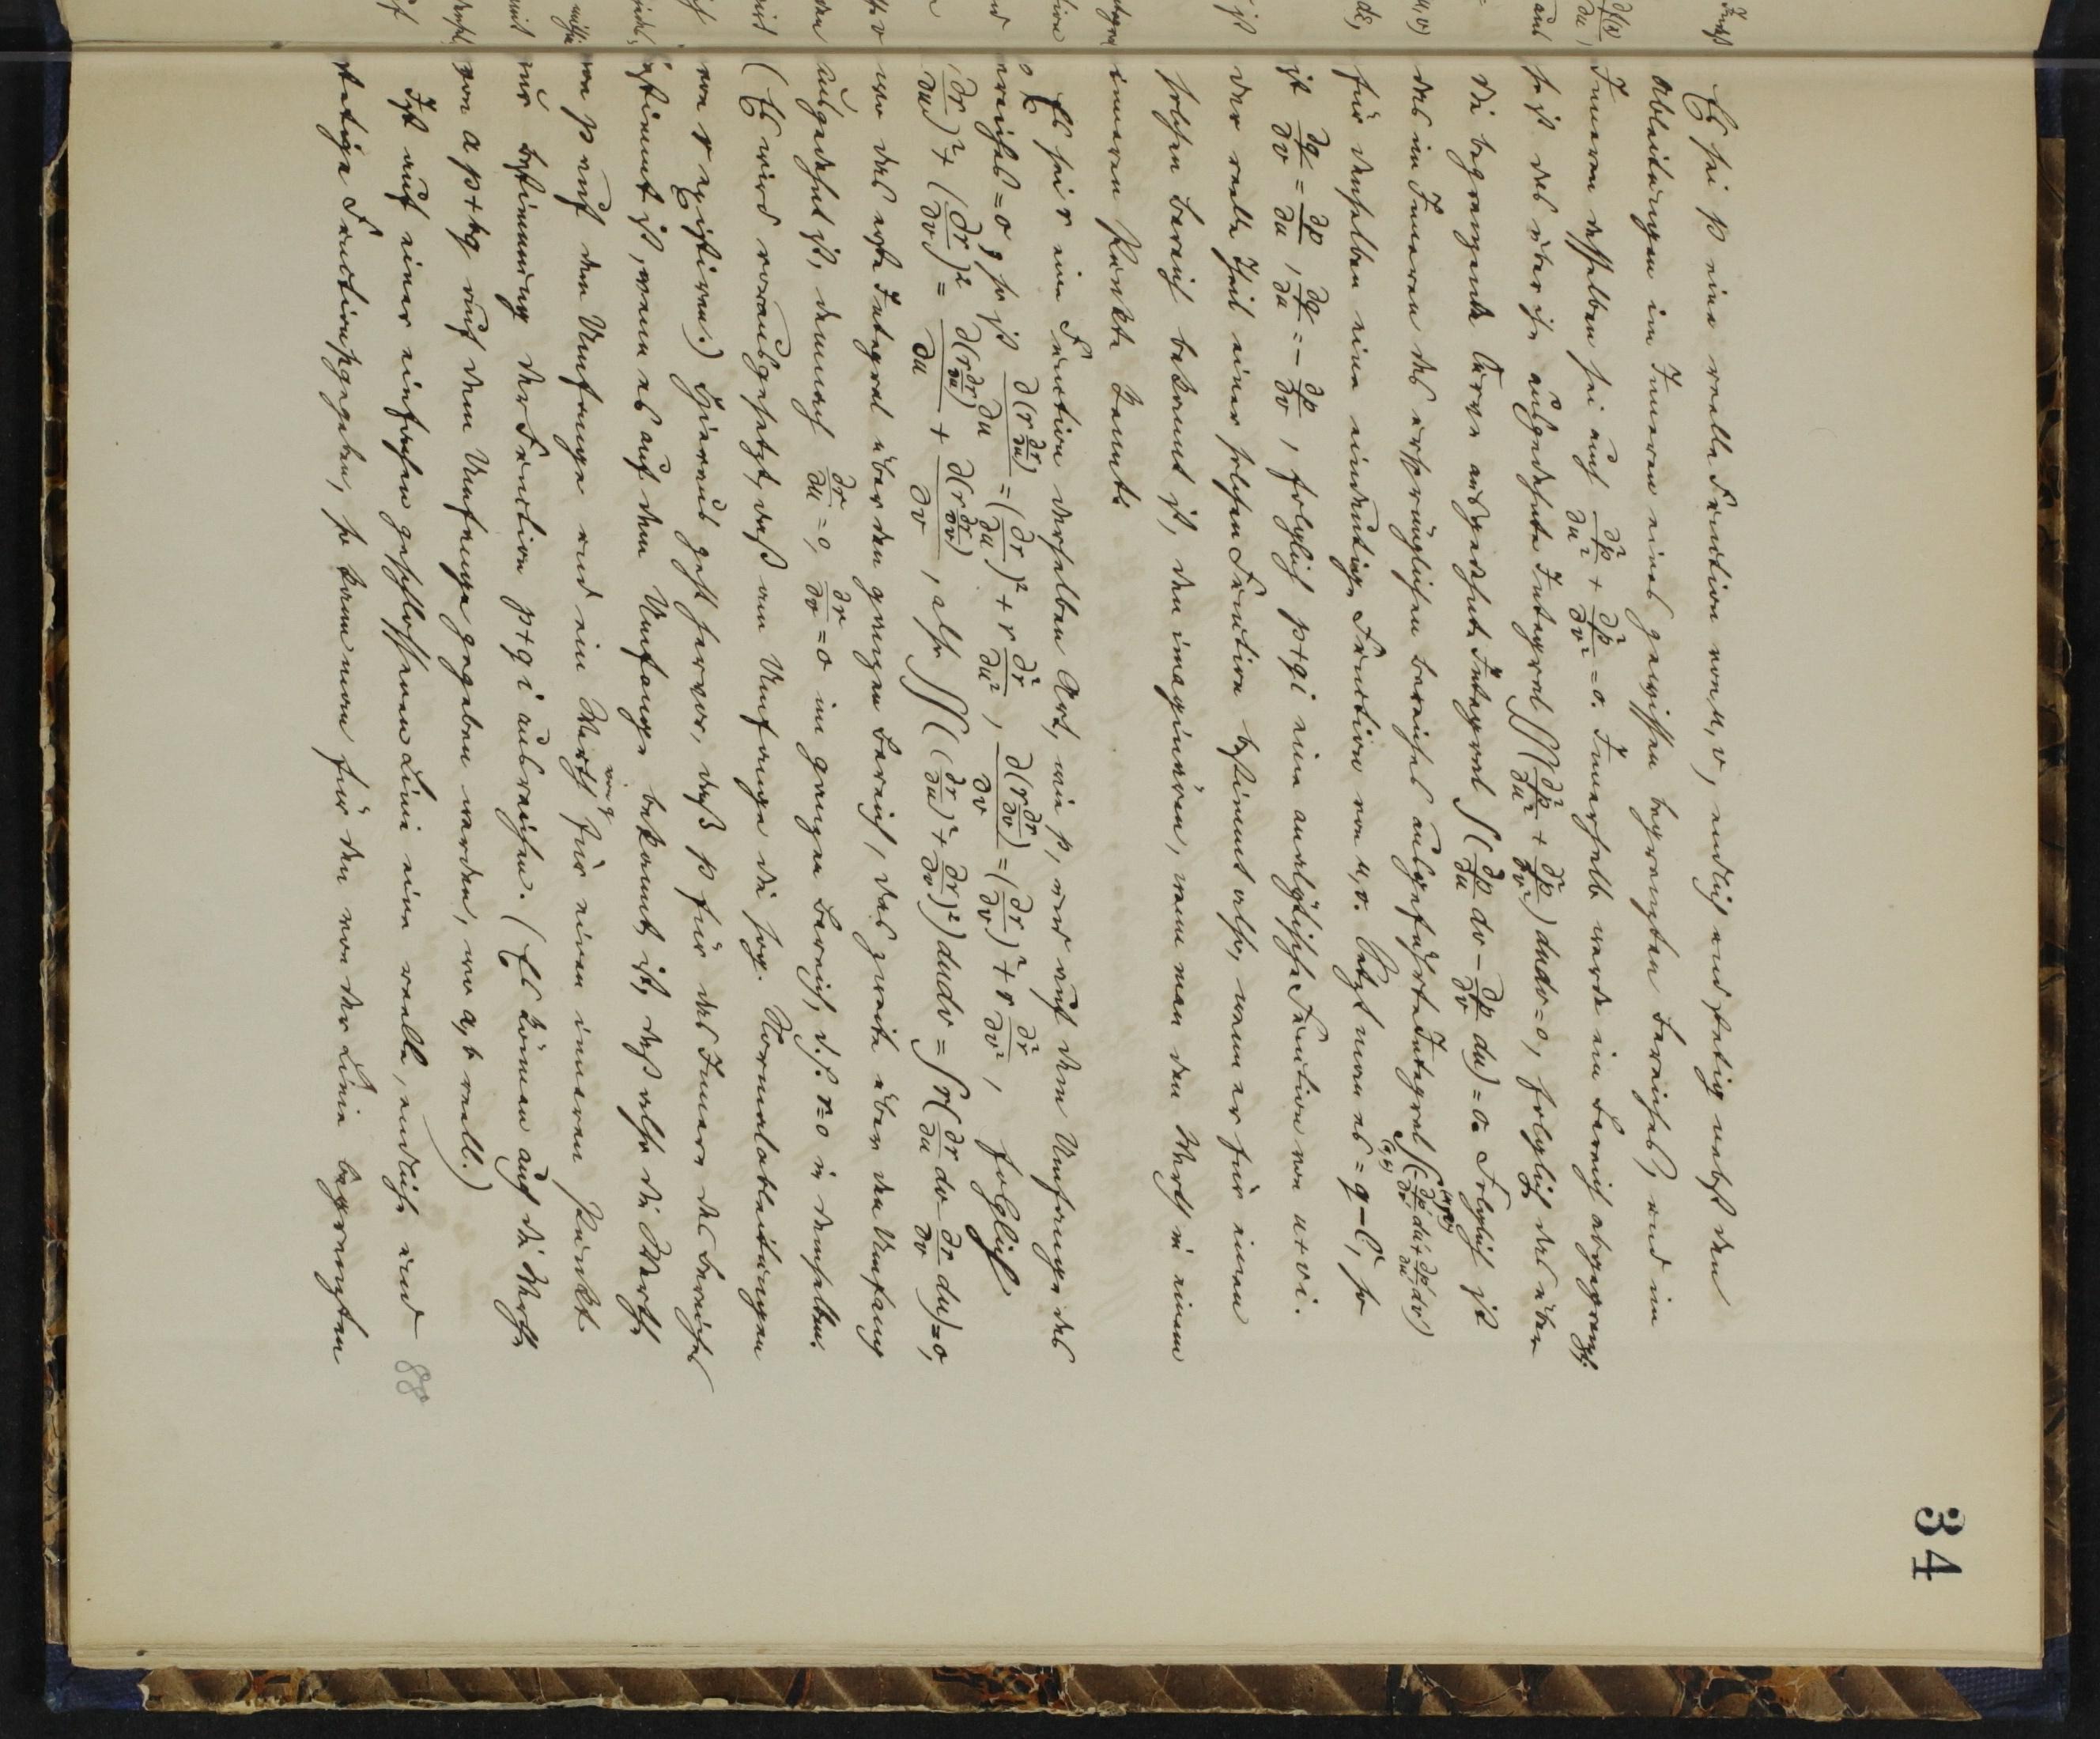 34
Es sei p eine reelle Function von u, v, endlich und stetig nebst den
Ableitungen im Inneren eines gewissen begrenzten Bereiches, und im
Inneren desselben sei auch ∂²p/∂u² + ∂²p/∂v² = 0. Innerhalb werde ein Bereich abgegrenzt;
so ist das über ihn ausgedehnte Integral ∫∫(∂²p/∂u² + ∂²p/∂v²) du dv = 0, folglich das über
die begrenzende Curve ausgedehnte Integral ∫(∂p/∂u dv − ∂p/∂v du) = 0. Folglich ist
das im Inneren des ursprünglichen Bereiches ausgeführte Integral ∫(−∂p/∂v du + ∂p/∂u dv)
für denselben eine eindeutige Function von u, v. Setzt man es = q − C, so
ist ∂q/∂v = ∂p/∂u, ∂q/∂u = −∂p/∂v, folglich p + qi eine analytische Function von u + vi.
Der reelle Theil einer solchen Function bestimmt also, wenn er für einen
solchen Bereich bekannt ist, den imaginären, wenn man den Werth in einem
inneren Punkte kennt.
Es sei r eine Function derselben Art, wie p, und auf dem Umfange des
Bereiches = 0, so ist ∂(r ∂r/∂u)/∂u = (∂r/∂u)² + r ∂²r/∂u², ∂(r ∂r/∂v)/∂v = (∂r/∂v)² + r ∂²r/∂v², folglich
(∂r/∂u)² + (∂r/∂v)² = ∂(r ∂r/∂u)/∂u + ∂(r ∂r/∂v)/∂v, also ∫∫((∂r/∂u)² + (∂r/∂v)²) du dv = ∫r(∂r/∂u dv − ∂r/∂v du) = 0,
wo das erste Integral über den ganzen Bereich, das zweite über den Umfang
ausgedehnt ist, demnach ∂r/∂u = 0, ∂r/∂v = 0 im ganzen Bereich, d. h. r = 0 in demselben.
(Es wird vorausgesetzt, daß am Umfange die sog. Normalableitungen
von r existiren.) Hieraus geht hervor, daß p für das Innere des Bereiches
bestimmt ist, wenn es auf dem Umfange bekannt ist, daß also die Werthe
von p auf dem Umfange und ein Werth von q für einen inneren Punkt
zur Bestimmung der Function p + qi ausreichen. (Es können auch die Werthe
von ap + bq auf dem Umfange gegeben werden, wo a, b reell.)
Ist auf einer einfachen geschlossenen Linie eine reelle, endliche und
stetige Function gegeben, so kann man für den von der Linie begrenzten
88